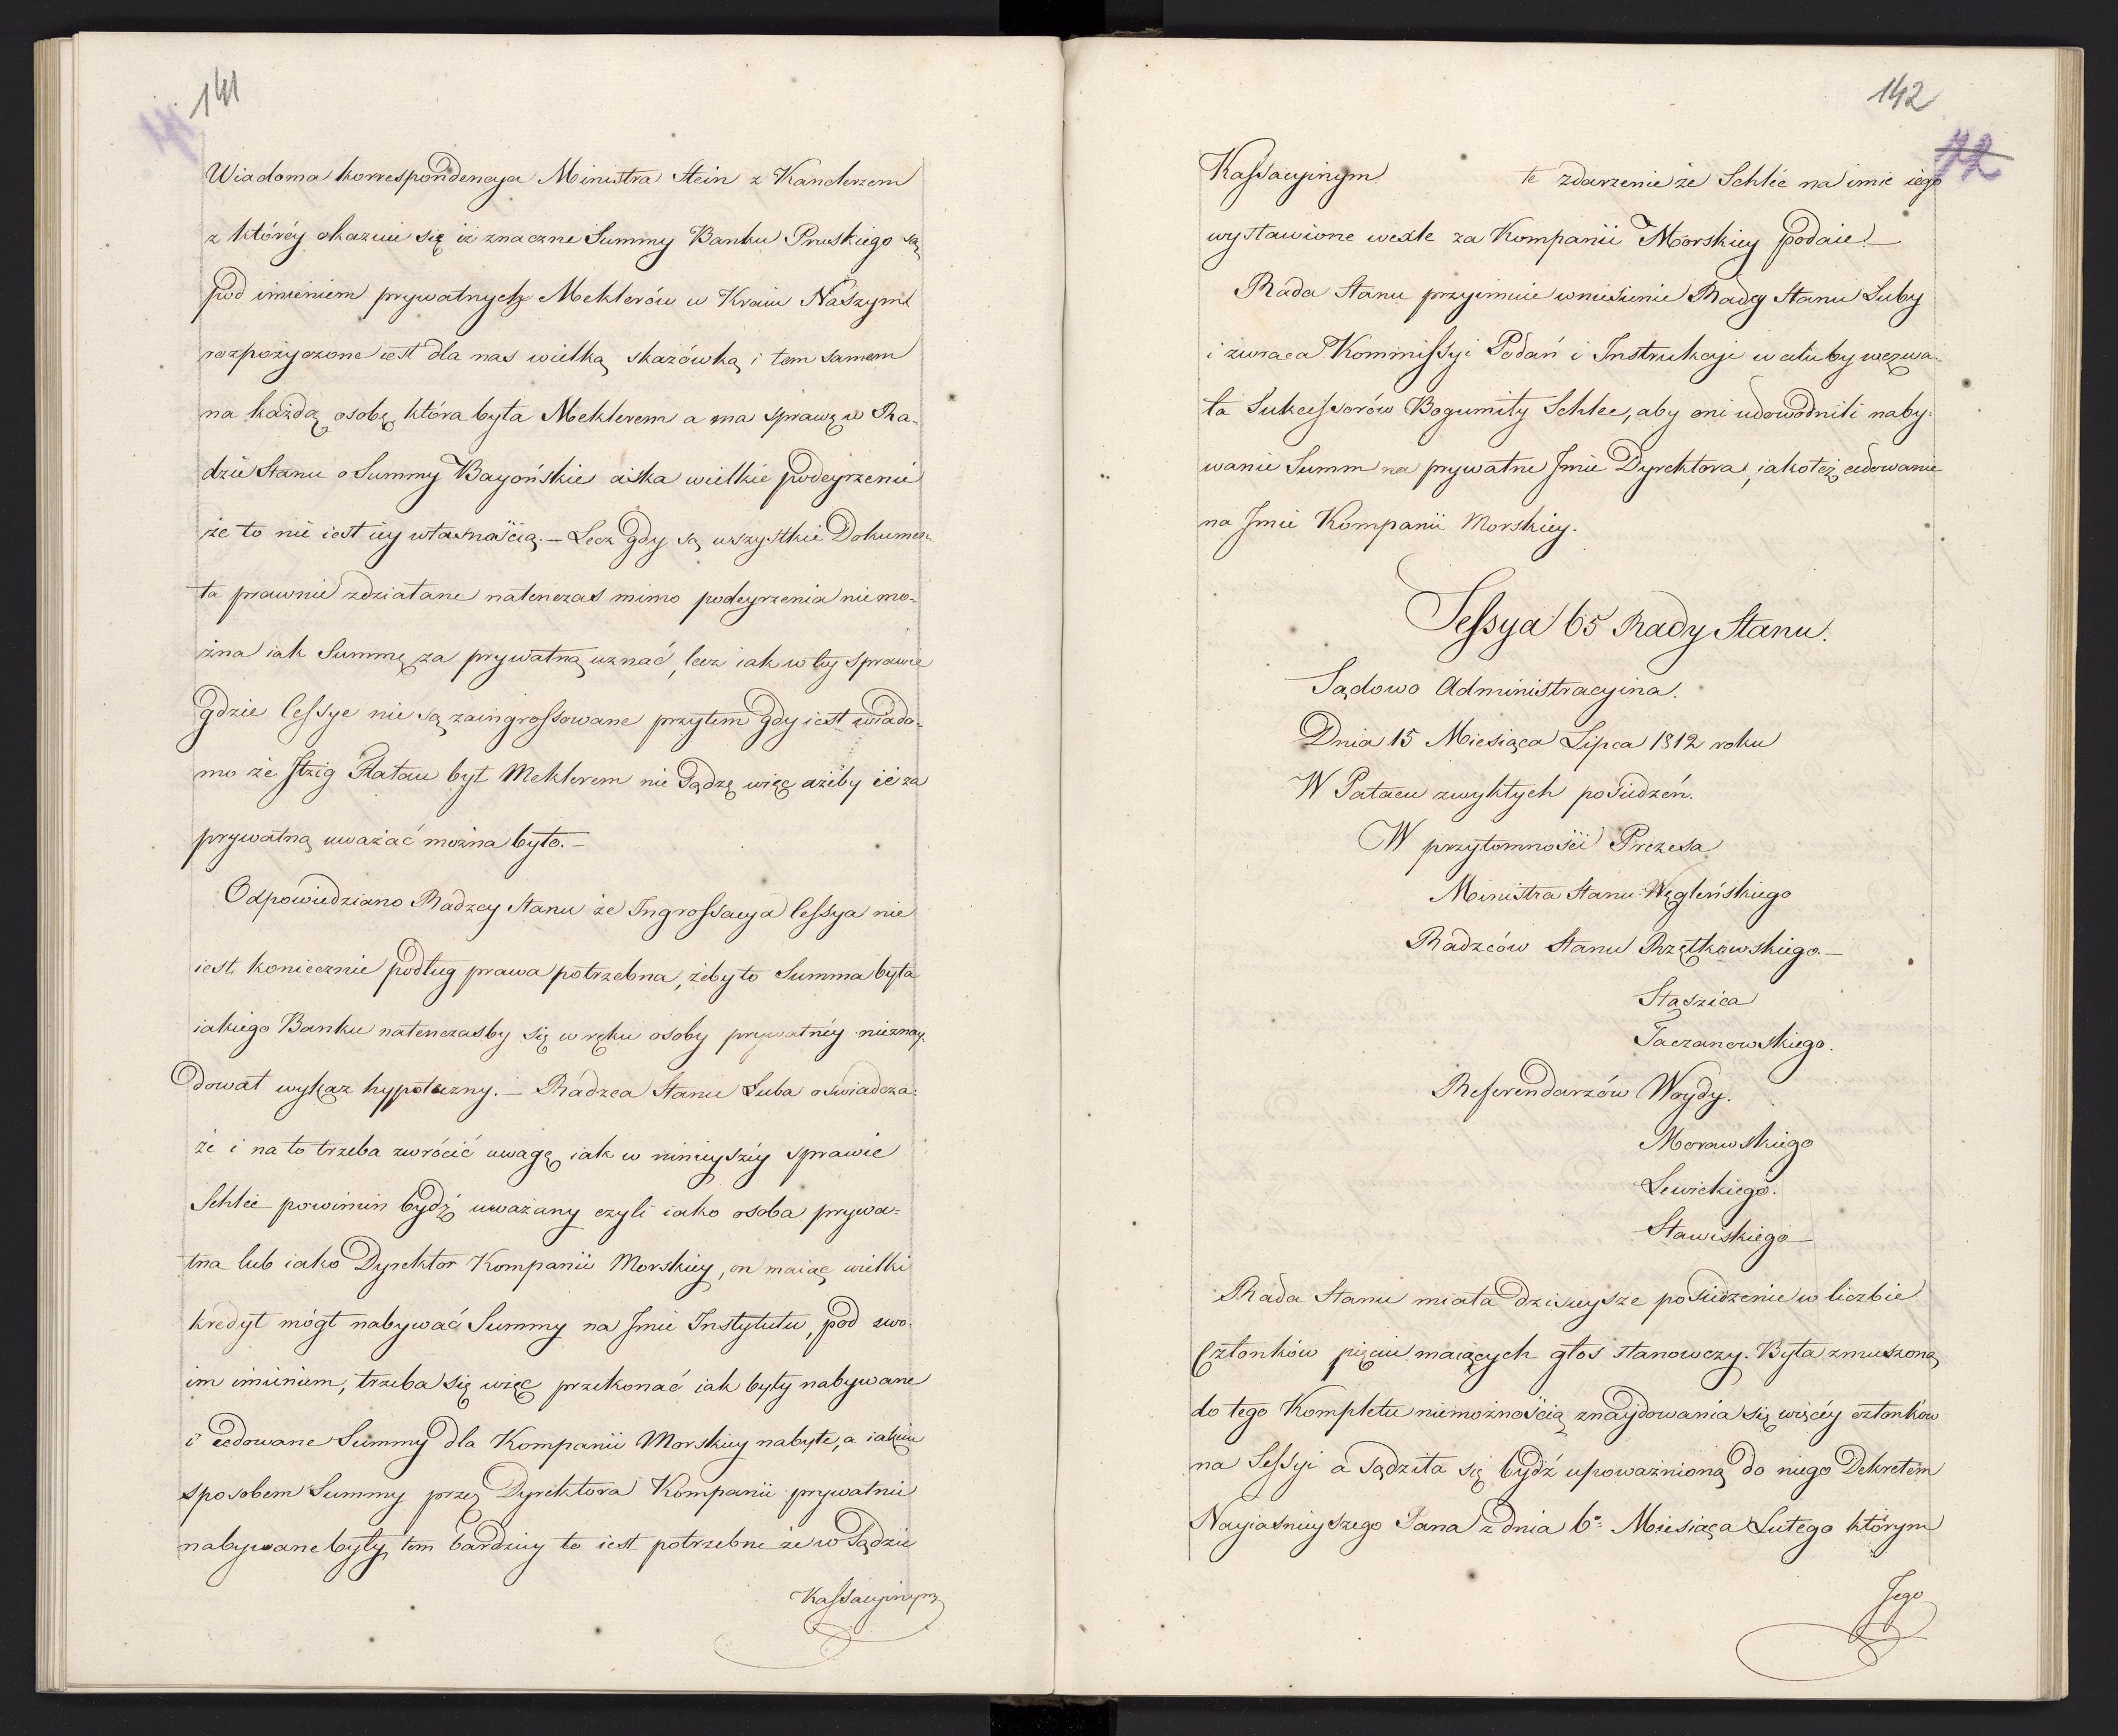 141
Wiadoma korrespondencya Ministra Stein z Kanclerzem
z któréy okazuie się iż znaczne Summy Banku Pruskiego są
pod imieniem prywatnych Meklerów w Kraiu Naszym
rozpożyczone iest dla nas wielką skazówką i tem samem
na każdą osobę która była Meklerem a ma sprawę w Ra-
dzie Stanu o Summy Bayońskie ciska wielkie podeyrzenie
że to nie iest iey własnością. — Lecz gdy są wszystkie Dokumen-
ta prawnie zdziałane natenczas mimo podeyrzenia niemo-
żna iak Summę za prywatną uznać, lecz iak w téy sprawie
gdzie Cessye nie są zaingrossowane przytem gdy iest wiado-
mo że Itzig Flatau był Meklerem nie sądzę więc ażeby ié za
prywatną uważać można było. —
Odpowiedziano Radzcy Stanu że Ingrossacya Cessya nie
iest koniecznie podług prawa potrzebna, żeby to Summa była
iakiego Banku natenczasby się w ręku osoby prywatnéy nieznay-
dował wykaz hypoteczny. — Radzca Stanu Luba oświadcza:
że i na to trzeba zwrócić uwagę iak w ninieyszéy sprawie
Schlee powinien bydź uważany czyli iako osoba prywa-
tna lub iako Dyrektor Kompanii Morskiey, on maiąc wielki
kredyt mógł nabywać Summy na Jmie Instytutu, pod swo-
im imieniem, trzeba się więc przekonać iak były nabywane
i cedowane Summy dla Kompanii Morskiey nabyte, a iakim
sposobem Summy przez Dyrektora Kompanii prywatnie
nabywane były, tem bardziey to iest potrzebne że w Sądzie
Kassacyinym
142
72
Kassacyinym te zdarzenie że Schlée na imie iego
wystawione wexle za Kompanii Morskiey podaie. —
Rada Stanu przyimuie wniesienie Radcy Stanu Luby
i zwraca Kommissyi Podań i Instrukcyi w celu by wezwa-
ła Sukcessorów Bogumiły Schlee, aby oni udowodnili naby-
wanie Summ na prywatne Jmie Dyrektora, iakoteż cedowanie
na Jmie Kompanii Morskiey.
Sessya 65 Rady Stanu.
Sądowo Administracyina.
Dnia 15 Miesiąca Lipca 1812 roku
W Pałacu zwykłych posiedzeń.
W przytomności Prezesa
Ministra Stanu Węgleńskiego
Radzców Stanu Rzętkowskiego. —
Staszica
Taczanowskiego.
Referendarzów Woydy.
Morawskiego
Lewickiego.
Stawiskiego —
Rada Stanu miała dzisieysze posiedzenie w liczbie
Członków pięciu maiących głos stanowczy. Była zmuszoną
do tego Kompletu niemożnością znaydowania się więcéy członków
na Sessyi a sądziła się bydź upoważnioną do niego Dekretem
Nayiasnieyszego Pana z dnia 6º Miesiąca Lutego którym
Jego